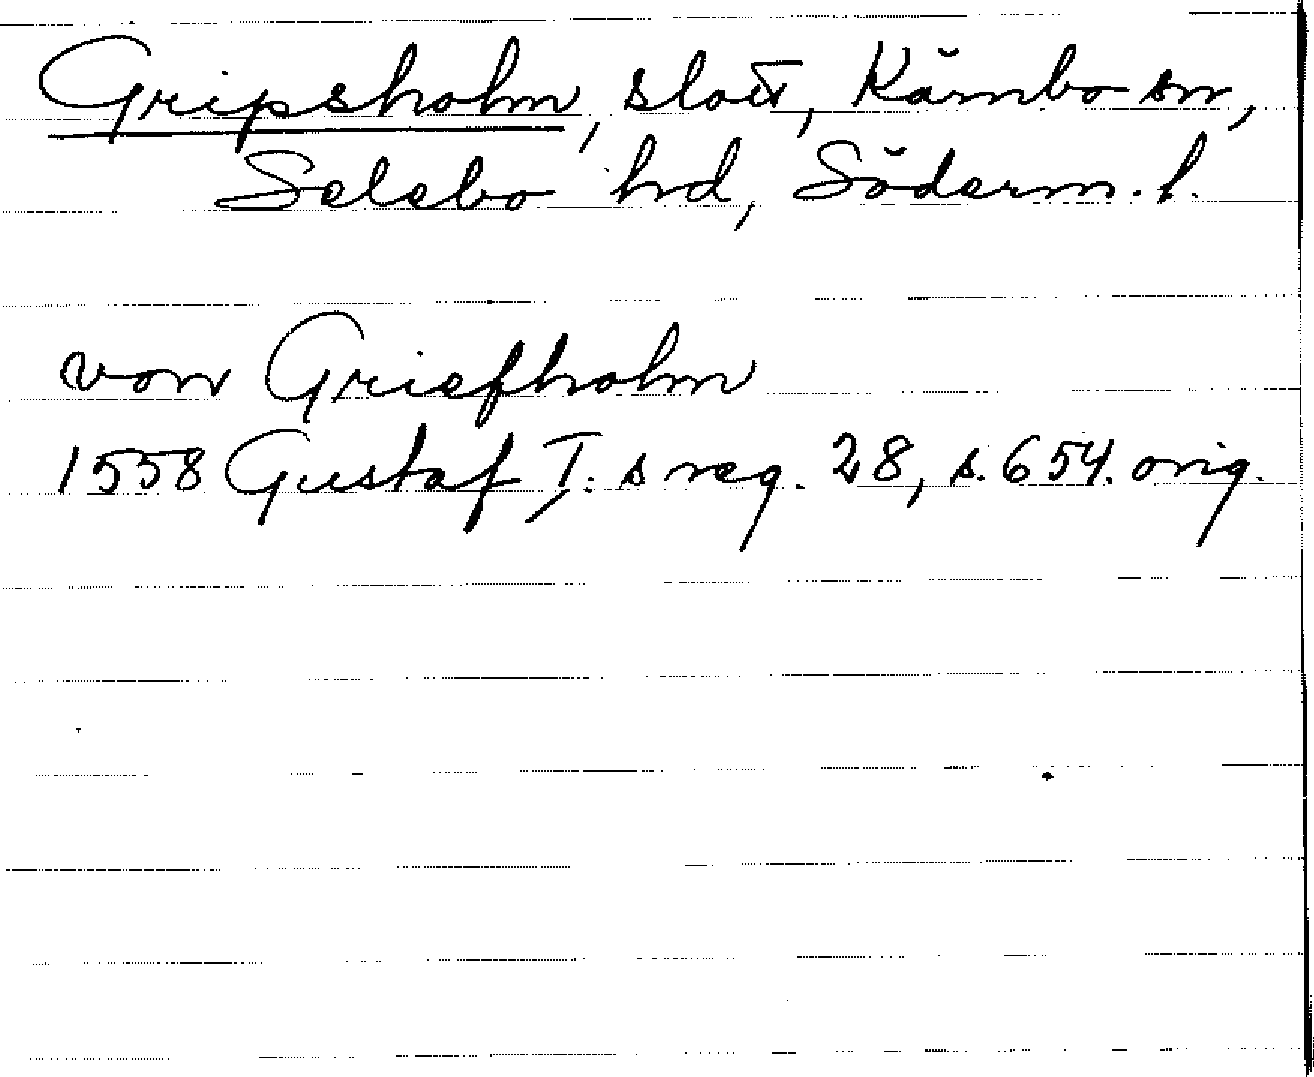 Gripsholm, slott, Kärnbo sn,
Selebo hd, Söderm. l.
von Griefholm
1558 Gustaf I:s reg. 28, s. 654. orig.